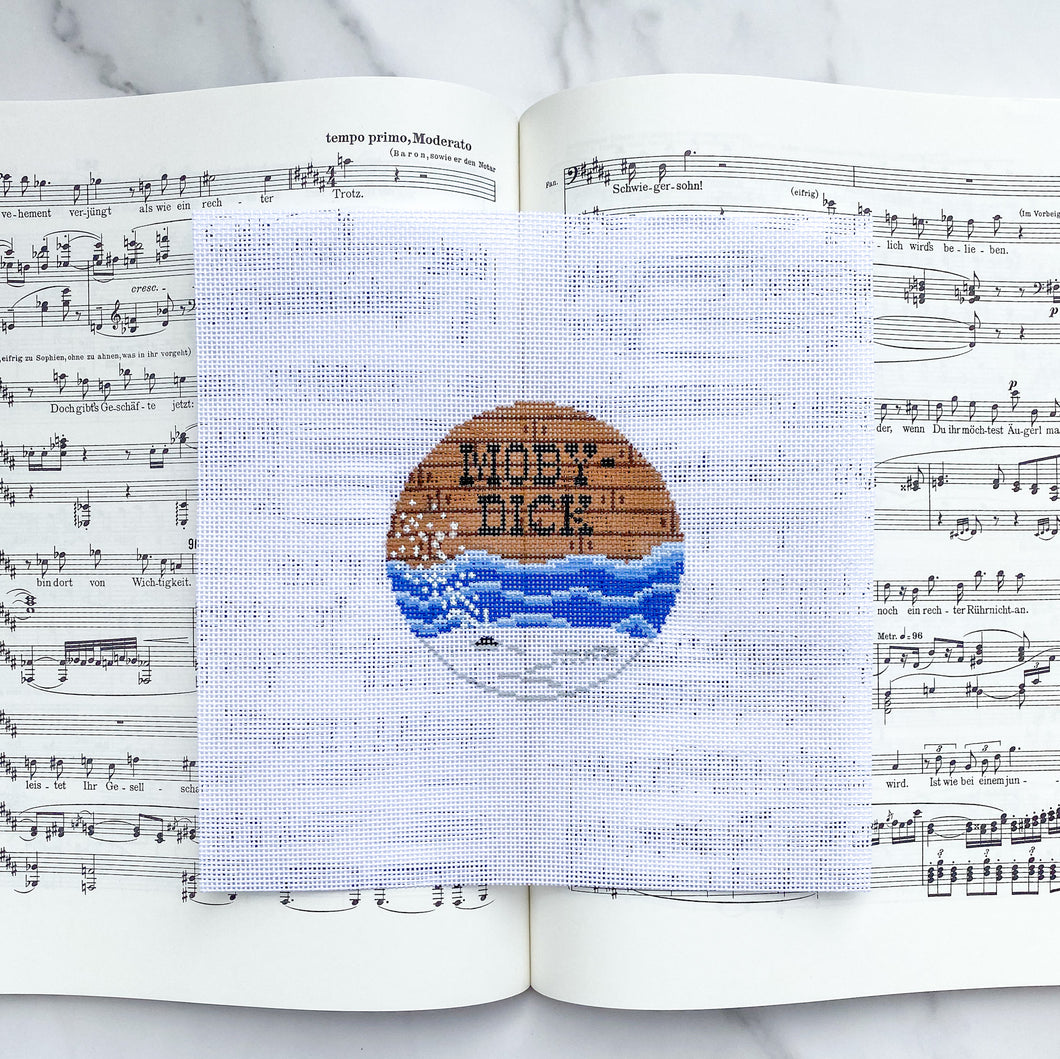 tempo primo, Moderato
(Baron, sowie er den Notar
ve-hement ver-jüngt als wie ein rech - ter Trotz.
cresc. -
eifrig zu Sophien, ohne zu ahnen, was in ihr vorgeht)
Doch gibt's Ge-schäf - te jetzt:
bin dort von Wich-tigkeit.
leis - tet Ihr Ge - sell - scha
MOBY-
DICK
Fan.
Schwie-ger-sohn!
(eifrig)
(Im Vorbeig
- lich wird's be - lie - ben.
p
p
der, wenn Du ihr möch-test Äu-gerl ma
noch ein rech - ter Rührnicht-an.
Metr. = 96
3 3
wird. Ist wie bei einem jun -
3 3 3